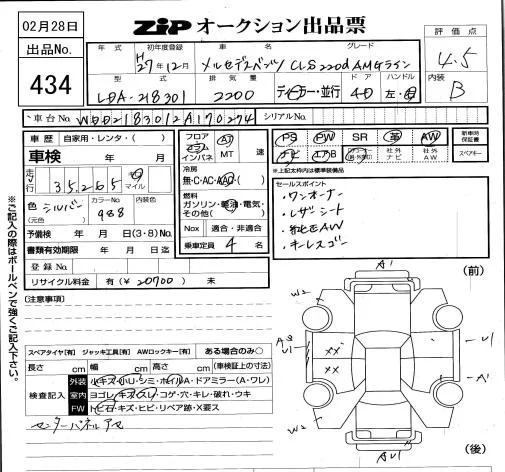 02月28日
ZiP オークション出品票
出品No. 434
年式 初年度登録 車名 グレード
H27年12月 メルセデスベンツ CLS220d AMGライン
評価点 4.5
型式 排気量 ドア ハンドル
LDA-218301 2200 ディーラー・並行 4D 左・右
内装 B
車台No. WDD2183012A170274 シリアルNo.
車歴 自家用・レンタ・( )
フロア コラム インパネ AT MT 速
PS PW SR 革 AW
新車時保証書
車検 年 月
エアB 社外ナビ 社外AW
スペアキー
※上記太枠内は標準装備品
冷房 無・C・AC・AAC・( )
走行 35265 マイル
燃料 ガソリン・軽油・電気・その他( )
セールスポイント
・ワンオーナー
・レザーシート
・純正AW
・キーレスゴー
色 シルバー (元色) カラーNo. 988 内装色
予備検 年 月 日(3・8)No.
Nox 適合・非適合
書類有効期限 年 月 日
乗車定員 4 名
登録No.
リサイクル料金 有(¥ 20700 ) 未
※ご記入の際はボールペンで強くご記入下さい。
(注意事項)
A1
(前)
W2
W2
A3
U1
XX
XX
U1
W2
W2
AU1
(後)
スペアタイヤ[有] ジャッキ工具[有] AWロックキー[有] ある場合のみ○
長さ cm 幅 cm 高さ cm (車検証上の寸法)
検査記入
外装 小キズ・小凹・シミ・ホイルA・ドアミラー(A・ワレ)
室内 ヨゴレ・キズ・スレ・コゲ・穴・キレ・破れ・ウキ
FW トビ石・キズ・ヒビ・リペア跡・X要ス
センターパネルアセ